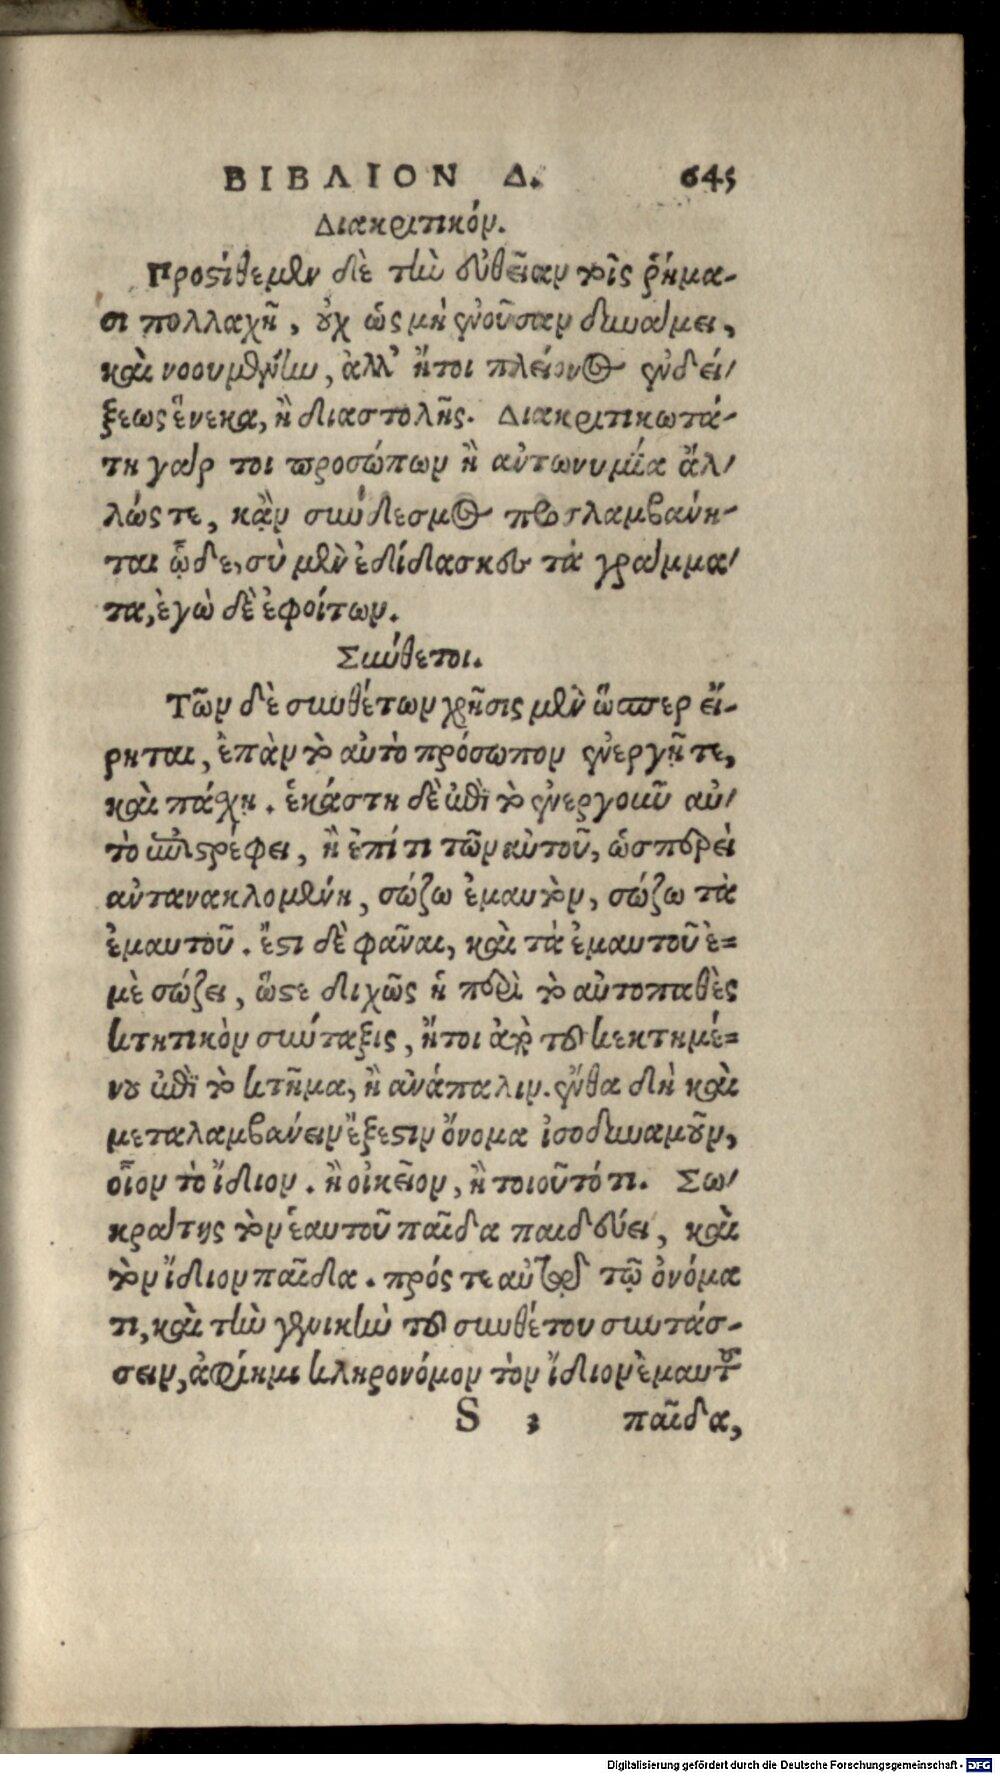 ΒΙΒΛΙΟΝ Δ. 645
Διακριτικόν.
Προστίθεμεν δὲ τὴν εὐθεῖαν τοῖς ῥήμα-
σι πολλαχῆ, οὐχ ὡς μὴ ἐνοῦσαν δυνάμει,
καὶ νοουμένην, ἀλλ' ἤτοι πλείονος ἐνδεί-
ξεως ἕνεκα, ἢ διαστολῆς. Διακριτικωτά-
τη γάρ τοι προσώπων ἡ αὐτωνυμία ἄλ-
λώς τε, κᾂν σύνδεσμος προσλαμβάνη-
ται ᾧδε, σὺ μὲν ἐδίδασκες τὰ γράμμα-
τα, ἐγὼ δὲ ἐφοίτων.
Σύνθετοι.
Τῶν δὲ συνθέτων χρῆσις μὲν ὥσπερ εἴ-
ρηται, ἐπὰν τὸ αὐτὸ πρόσωπον ἐνεργῇ τε,
καὶ πάσχῃ. ἑκάστη δὲ ἐπὶ τὸ ἐνεργοῦν αὐ-
τὸ ἐπιστρέφει, ἢ ἐπί τι τῶν αὐτοῦ, ὡσπερεὶ
αὐτανακλομένη, σώζω ἐμαυτὸν, σώζω τὰ
ἐμαυτοῦ. ἔστι δὲ φᾶναι, καὶ τὰ ἐμαυτοῦ ἐ=
μὲ σώζει, ὥστε διχῶς ἡ περὶ τὸ αὐτοπαθὲς
κτητικὸν σύνταξις, ἤτοι ἀπὸ τοῦ κεκτημέ=
νου ἐπὶ τὸ κτῆμα, ἢ ἀνάπαλιν. ἔνθα δὴ καὶ
μεταλαμβάνειν ἔξεστιν ὄνομα ἰσοδυναμοῦν,
οἷον τὸ ἴδιον. ἢ οἰκεῖον, ἢ τοιοῦτό τι. Σω-
κράτης τὸν ἑαυτοῦ παῖδα παιδεύει, καὶ
τὸν ἴδιον παῖδα. πρός τε αὐτῷ τῷ ὀνόμα
τι, καὶ τὴν γενικὴν τοῦ συνθέτου συντάσ-
σειν, ἀφίημι κληρονόμον τὸν ἴδιον ἐμαυτοῦ
S 3 παῖδα,
Digitalisierung gefördert durch die Deutsche Forschungsgemeinschaft - DFG